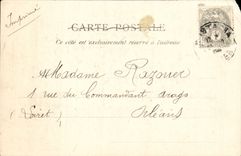 CARTE POSTALE
Imprimé
Ce côté est exclusivement réservé à l'adresse
Madame Razouer
1 rue du Commandant Arago
(Loiret) Orléans